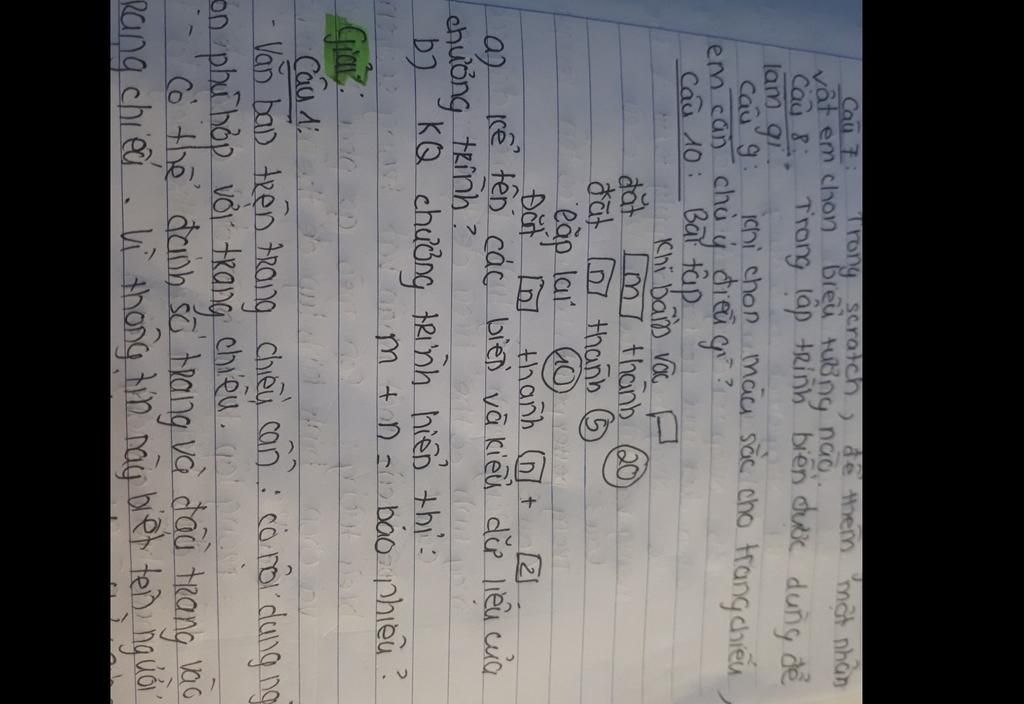 Câu 7: Trong scratch, để thêm một nhân
vật em chọn biểu tượng nào.
Câu 8: Trong lập trình biến được dùng để
làm gì?
Câu 9: Khi chọn màu sắc cho trang chiếu,
em cần chú ý điều gì?
Câu 10: Bài tập
Khi bấm vào
đặt m thành 20
đặt n thành 5
lặp lại 10
Đặt n thành n + 2
a) Kể tên các biến và kiểu dữ liệu của
chương trình?
b) KQ chương trình hiển thị:
m + n = bao nhiêu?
Giải:
Câu 1:
- Văn bản trên trang chiếu cần: có nội dung ng
ọn phù hợp với trang chiếu.
- Có thể đánh số trang và đầu trang vào
trang chiếu. Vì thông tin này biết tên người